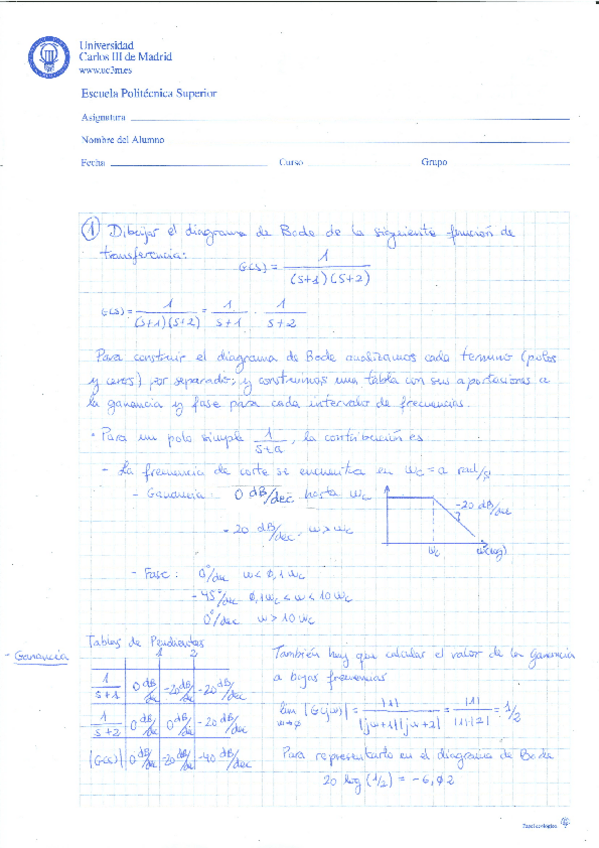 Universidad
Carlos III de Madrid
www.uc3m.es
Escuela Politécnica Superior
Asignatura
Nombre del Alumno
Fecha Curso Grupo
① Dibujar el diagrama de Bode de la siguiente función de
transferencia:
G(s) = 1 / (s+1)(s+2)
G(s) = 1 / (s+1)(s+2) = 1 / s+1 · 1 / s+2
Para construir el diagrama de Bode analizamos cada termino (polos
y ceros) por separado; y construimos una tabla con sus aportaciones a
la ganancia y fase para cada intervalo de frecuencias.
• Para un polo simple 1 / s+a, la contribución es
- La frecuencia de corte se encuentra en ωc = a rad/s
- Ganancia: 0 dB/dec hasta ωc
-20 dB/dec
-20 dB/dec ω > ωc
ωc ω(log)
- Fase: 0°/dec ω < 0,1 ωc
-45°/dec 0,1 ωc < ω < 10 ωc
0°/dec ω > 10 ωc
- Ganancia
Tablas de Pendientes
1 2
1 / s+1 0 dB/dec -20 dB/dec -20 dB/dec
1 / s+2 0 dB/dec 0 dB/dec -20 dB/dec
|G(s)| 0 dB/dec -20 dB/dec -40 dB/dec
También hay que calcular el valor de la ganancia
a bajas frecuencias
lim ω→0 |G(jω)| = |1| / |jω+1||jω+2| = |1| / |1||2| = 1/2
Para representarlo en el diagrama de Bode
20 log (1/2) = -6,02